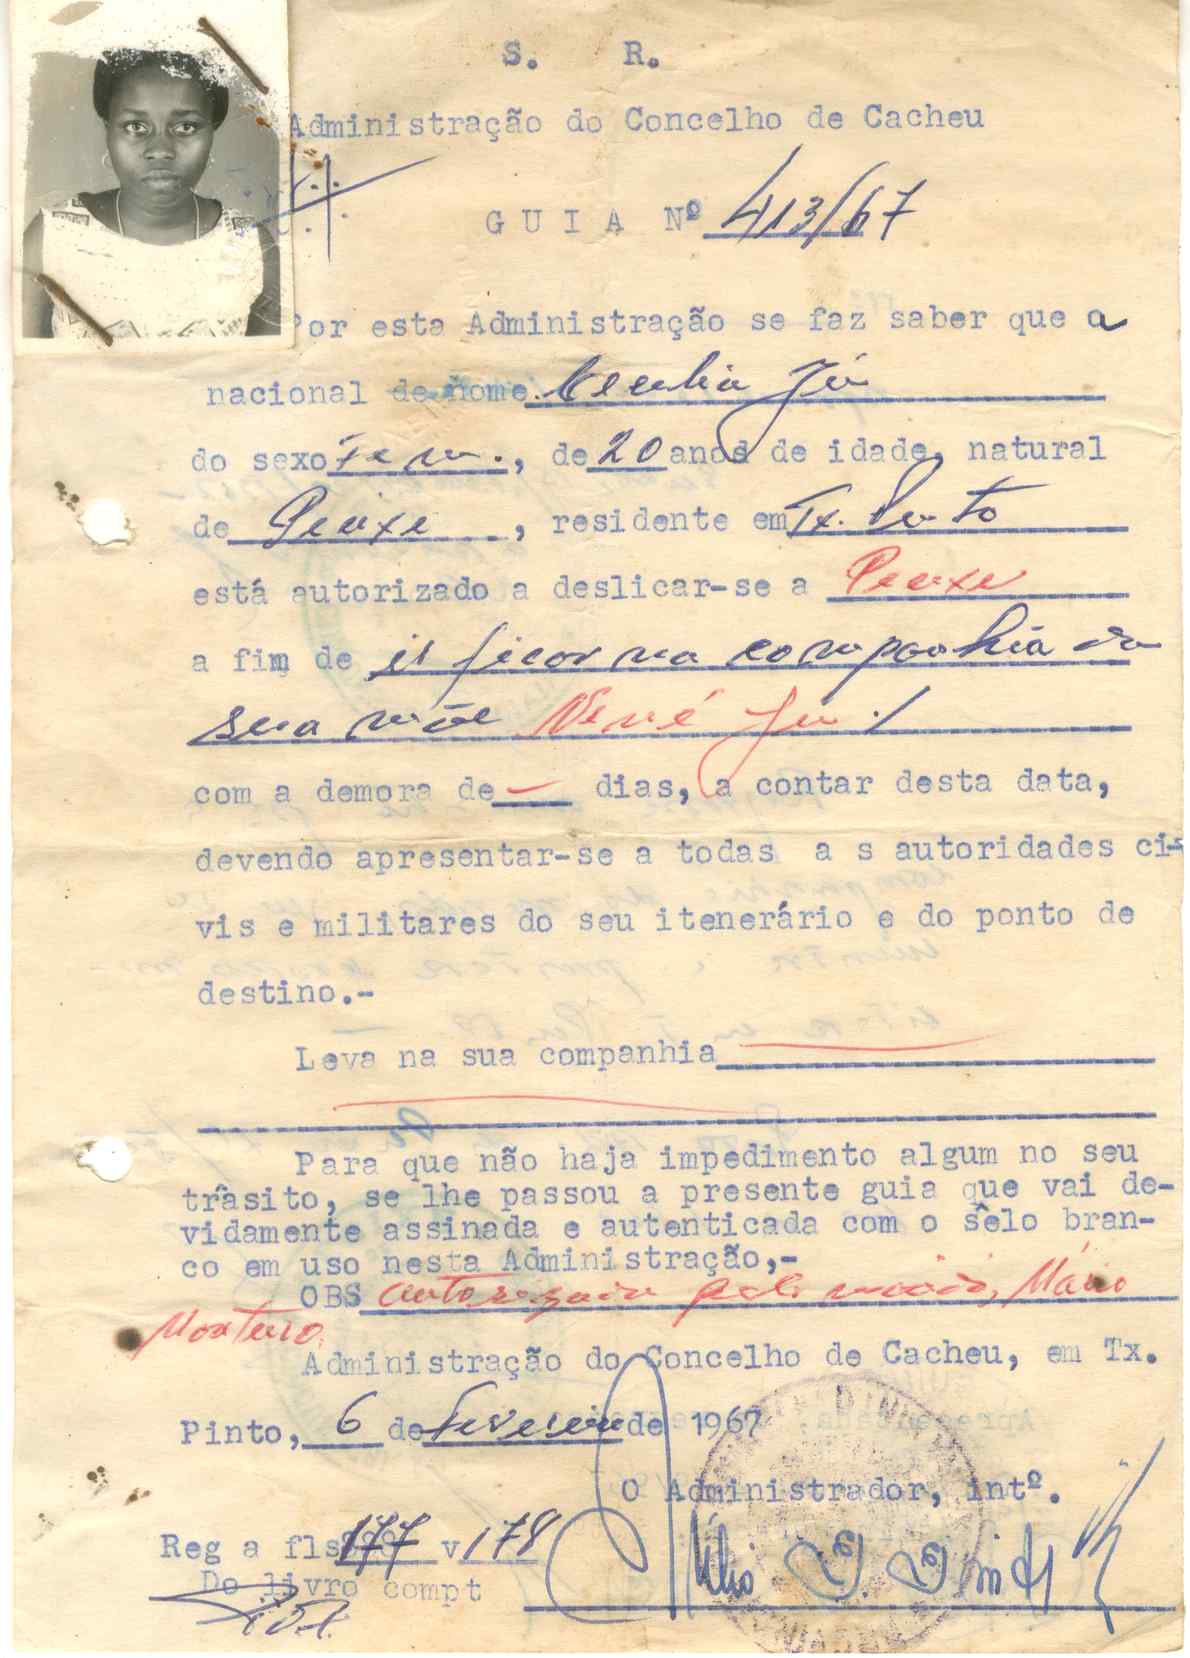 S. R.
Administração do Concelho de Cacheu
GUIA Nº 413/67
Por esta Administração se faz saber que a
nacional de nome Cecilia Jú
do sexo Fem., de 20 anos de idade, natural
de Peixe, residente em Tx. Pinto
está autorizado a deslicar-se a Peixe
a fim de ir ficar na companhia da
sua mãe Nené Ju ./
com a demora de — dias, a contar desta data,
devendo apresentar-se a todas a s autoridades ci-
vis e militares do seu itenerário e do ponto de
destino.-
Leva na sua companhia
Para que não haja impedimento algum no seu
trâsito, se lhe passou a presente guia que vai de-
vidamente assinada e autenticada com o sêlo bran-
co em uso nesta Administração,-
OBS autorizada pelo Mário
Monteiro.
Administração do Concelho de Cacheu, em Tx.
Pinto, 6 de Fevereiro de 1967
O Administrador, intº.
Reg a fls 177 v 178
Do livro compt